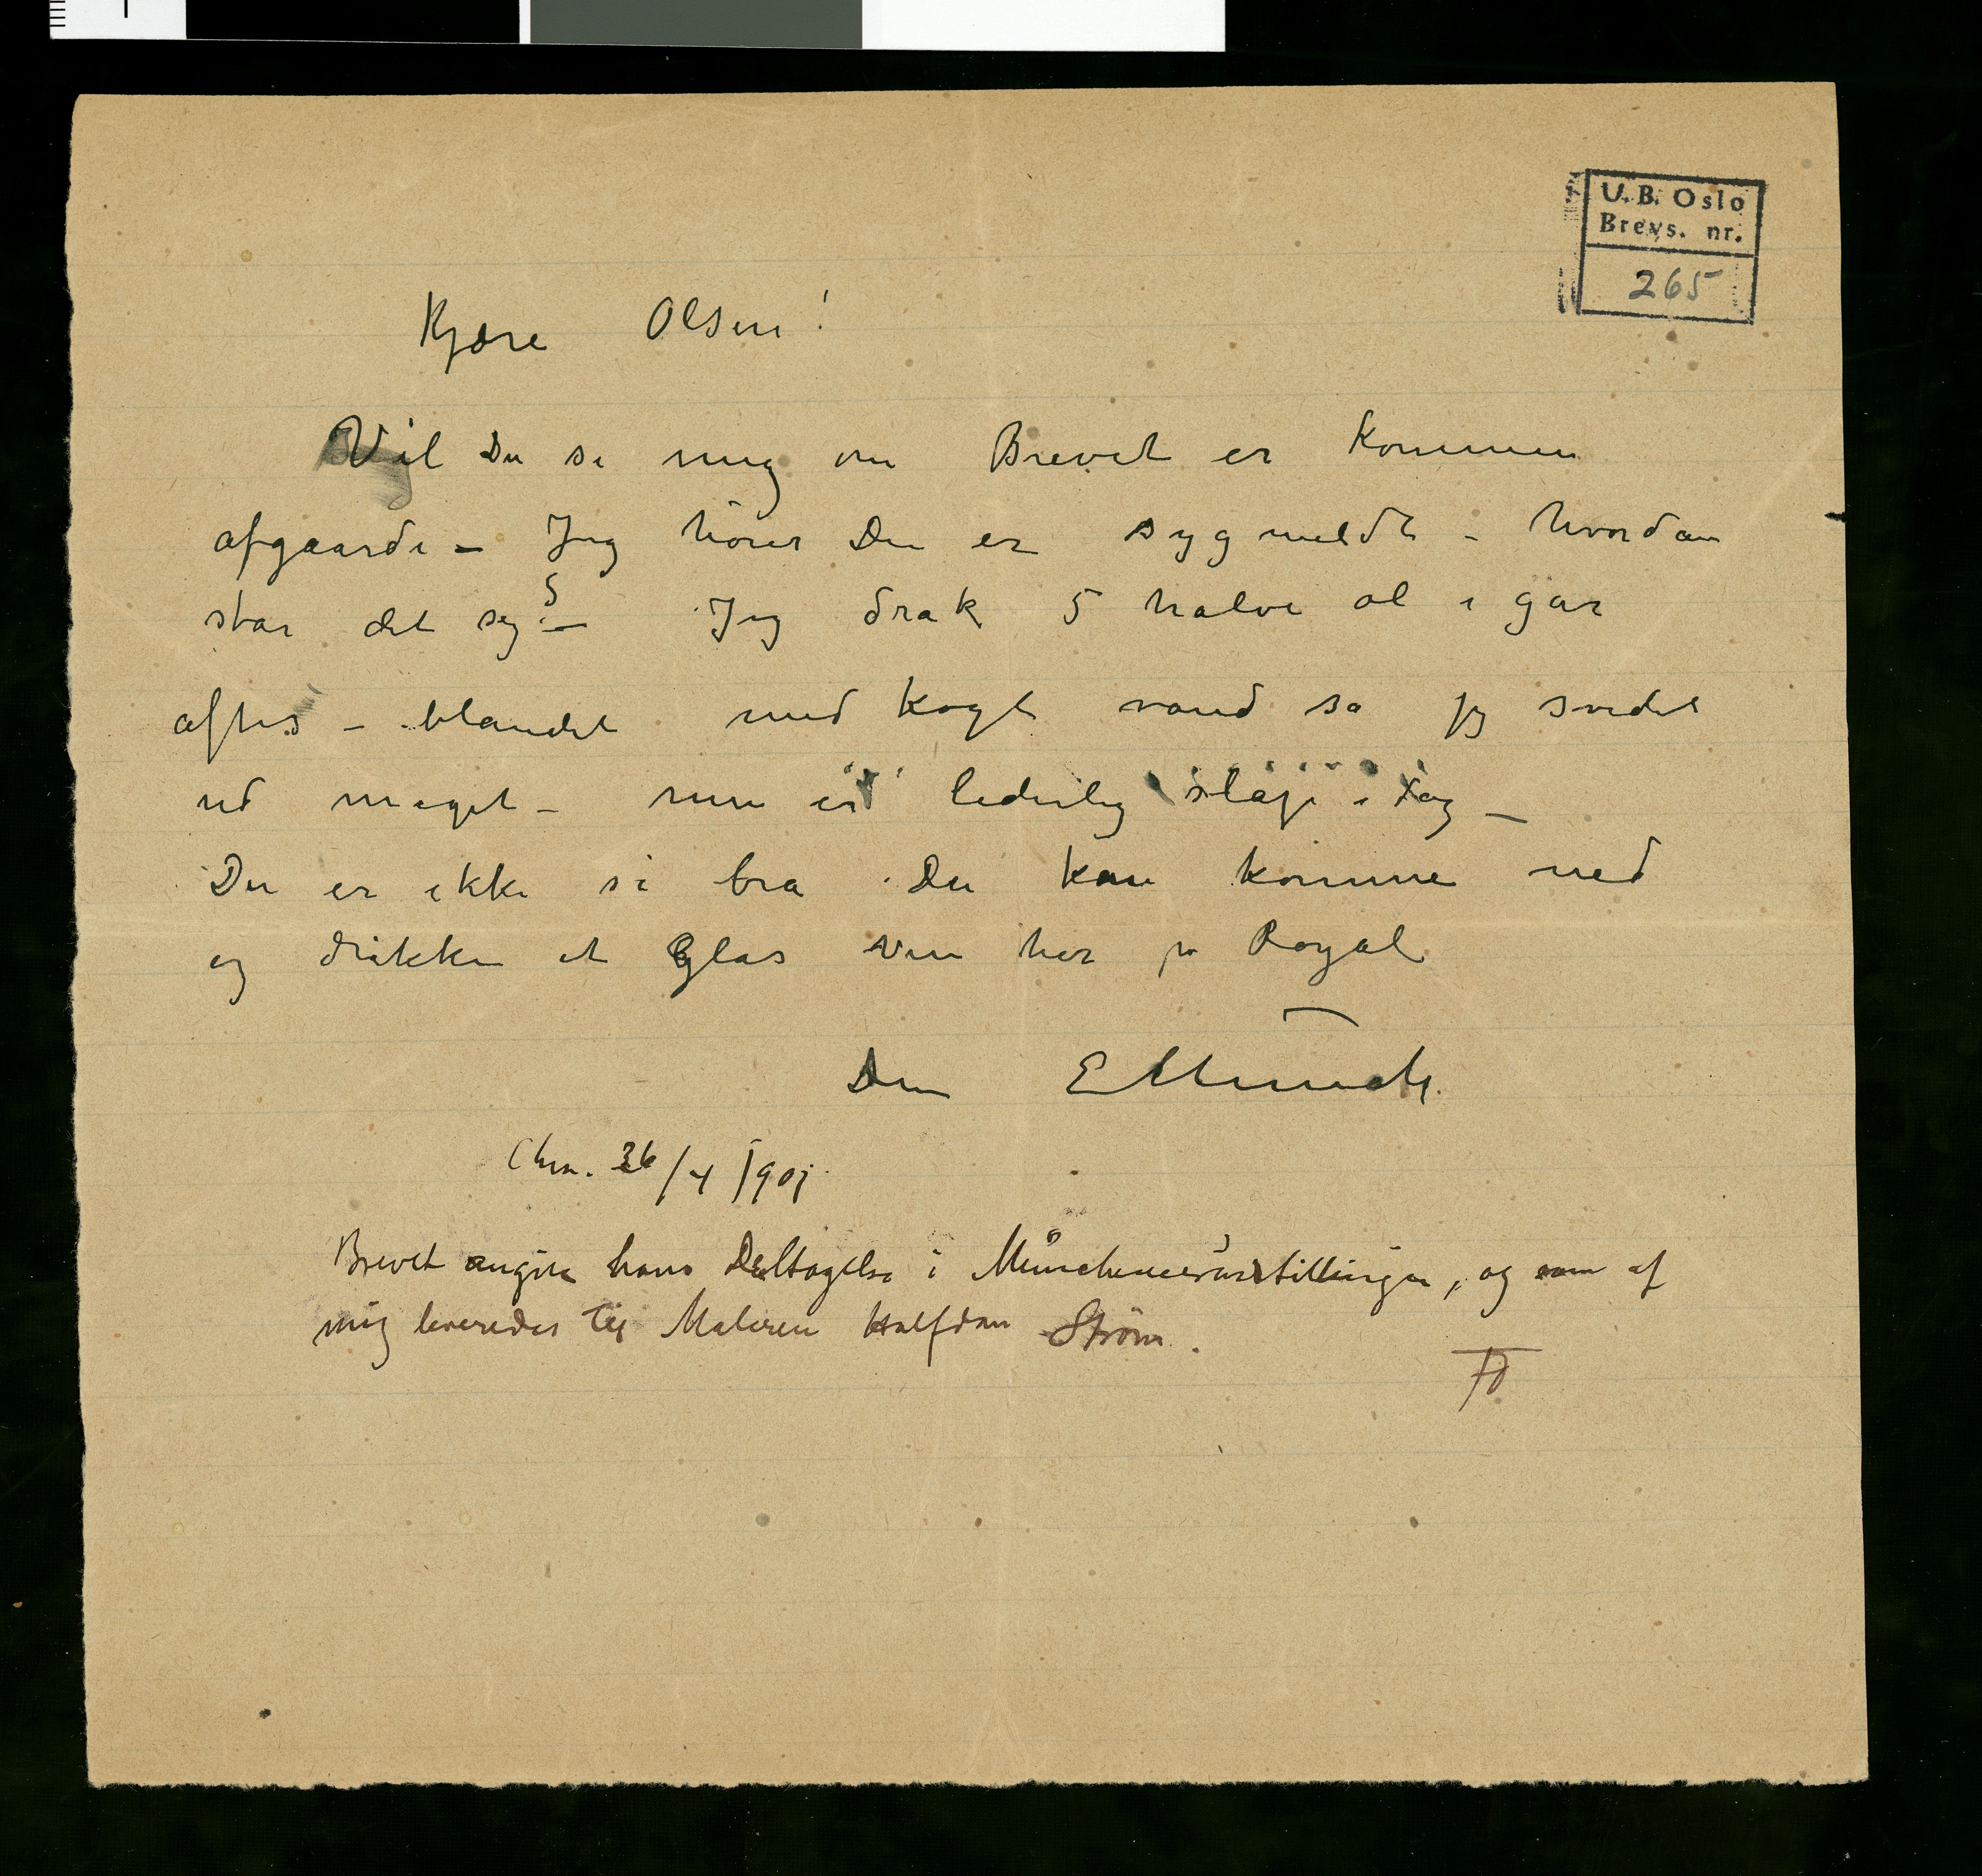 U.B. Oslo
Brevs. nr.
265
Kjære Olsen!
Vil Du si mig om Brevet er kommen
afgaarde – Jeg hører Du er sygmeldt – hvordan
står det sig? – Jeg drak 5 halve øl i går
aftes – blandet med kogt vand så jeg svedet
ud meget – nu er liderlig sløj i dag –
Du er ikke så bra Du kan komme ned
og drikke et Glas Vin her på Royal
Din EMunch
Chra. 26/4 1901
Brevet angik hans Deltagelse i Münchenerudstillingen, og som af
mig leveredes til Maleren Halfdan Strøm.